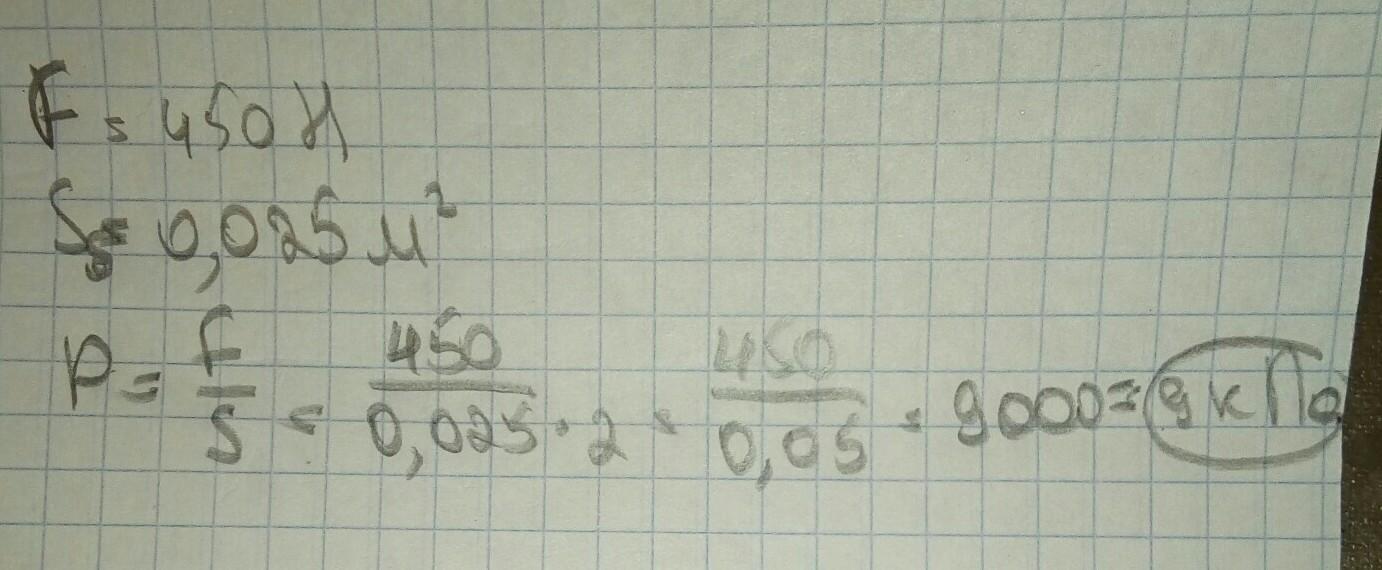 F = 450 Н
S = 0,025 м²
p = F/S = 450/0,025 · 2 = 450/0,05 = 9000 = 9кПа